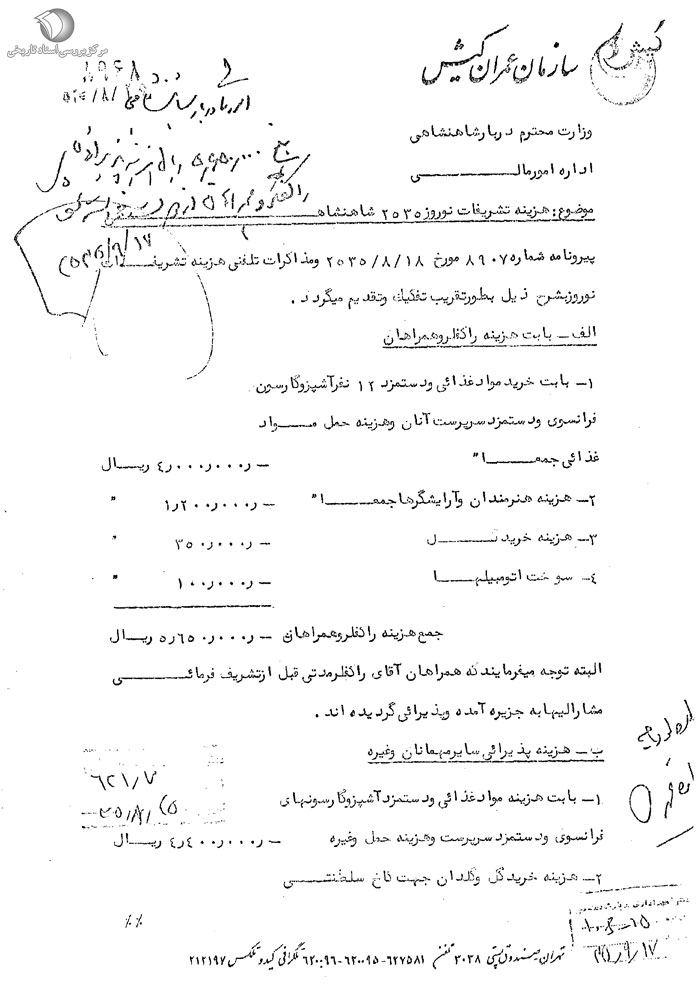 مرکز بررسی اسناد تاریخی
کیش
سازمان عمران کیش
وزارت محترم دربار شاهنشاهی
اداره امور مالی
موضوع: هزینه تشریفات نوروز ۲۵۳۵ شاهنشاهی
پیرو نامه شماره ۸۹۰۷ مورخ ۲۵۳۵/۸/۱۸ ومذاکرات تلفنی هزینه تشریفات
نوروز بشرح ذیل بطور تقریب تفکیک وتقدیم میگردد .
الف - بابت هزینه راکفلر وهمراهان
۱- بابت خرید مواد غذائی ودستمزد ۱۲ نفر آشپز وگارسون
فرانسوی ودستمزد سرپرست آنان وهزینه حمل مواد
غذائی جمعا" -ر۰۰۰ر۰۰۰ر۴ ریال
۲- هزینه هنرمندان وآرایشگرها جمعا" -ر۰۰۰ر۲۰۰ر۱ "
۳- هزینه خرید گل -ر۰۰۰ر۳۵۰ "
۴- سوخت اتومبیلها -ر۰۰۰ر۱۰۰ "
جمع هزینه راکفلر وهمراهان -ر۰۰۰ر۶۵۰ر۵ ریال
البته توجه میفرمایند که همراهان آقای راکفلر مدتی قبل از تشریف فرمائی
مشارالیها به جزیره آمده وپذیرائی گردیده اند .
ب - هزینه پذیرائی سایر مهمانان وغیره
۱- بابت هزینه مواد غذائی ودستمزد آشپز وگارسونهای
فرانسوی ودستمزد سرپرست وهزینه حمل وغیره -ر۰۰۰ر۴۰۰ر۴ ریال
۲- هزینه خرید گل وگلدان جهت کاخ سلطنتی
٪ ٪
۶۲۱/۷
تهران صندوق پستی ۳۰۳۸ تلفن ۶۲۷۵۸۱-۶۲۰۰۹۵-۶۲۰۰۹۶ تلگرافی کیدو تلکس ۲۱۲۱۹۷